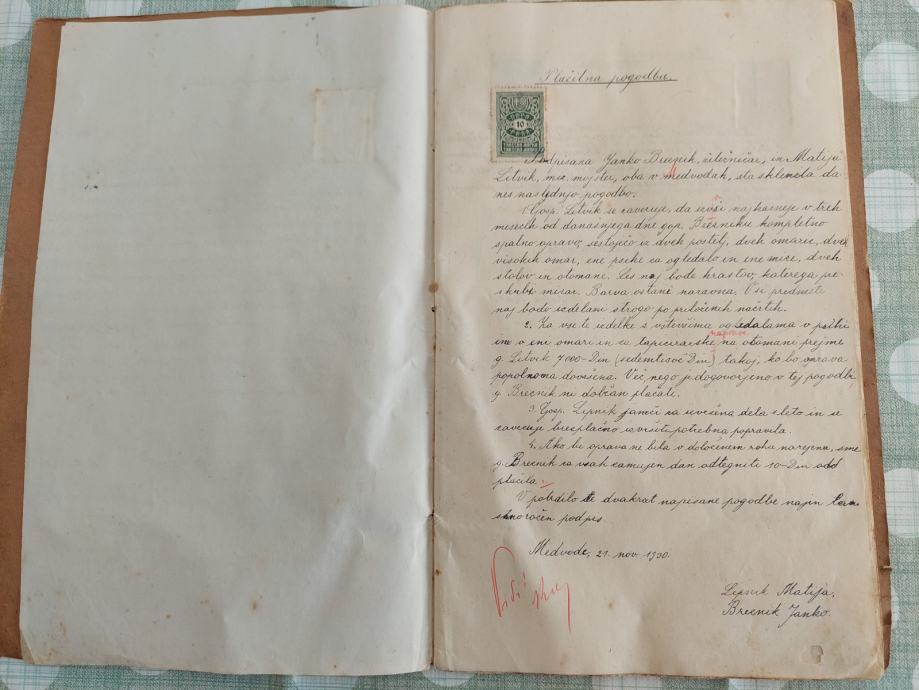 Plačilna pogodba.
10
Podpisana Janko Brecnik, čitničar, in Matija
Litvik, miz. mojster, oba v medvodah, sta sklenila da
nes naslednjo pogodbo.
1. Gosp. Litvik se zavezuje, da izvši najkasneje v treh
mesecih od današnjega dne gosp. Brezniku kompletno
spalno opravo, sestoječo iz dveh postelj, dveh omaric, dveh
visokih omar, ene psihe za ogledalo in ene mize, dveh
stolov in otomane. Les naj bode hrastov, katerega pre
skubi mizar. Barva ostani naravna. Vsi predmeti
naj bodo izdelani strogo po priloženih načrtih.
2. Za vse te izdelke z vštevšima ogledalama v psihi
in v eni omari in za tapeciranske naprave na otomani prejme
g. Litvik 7000-Din (sedemtisoč Din) takoj, ko bo oprava
popolnoma dovršena. Več, nego je dogovorjeno v tej pogodbi
g. Brecnik ni dolžan plačati.
3. Gosp. Lipnik jamči za izvršena dela 5 leto in se
zavezuje brezplačno izvršiti potrebna popravila.
4. Ako bi oprava ne bila v določenem roku narejena, sme
g. Brecnik za vsak zamujen dan odtegniti 10-Din odd
plačila.
V potrdilo te dvakrat napisane pogodbe najin
stnoročen podpis
Medvode, 21. nov. 1930.
Lipnik Matija.
Brecnik Janko.